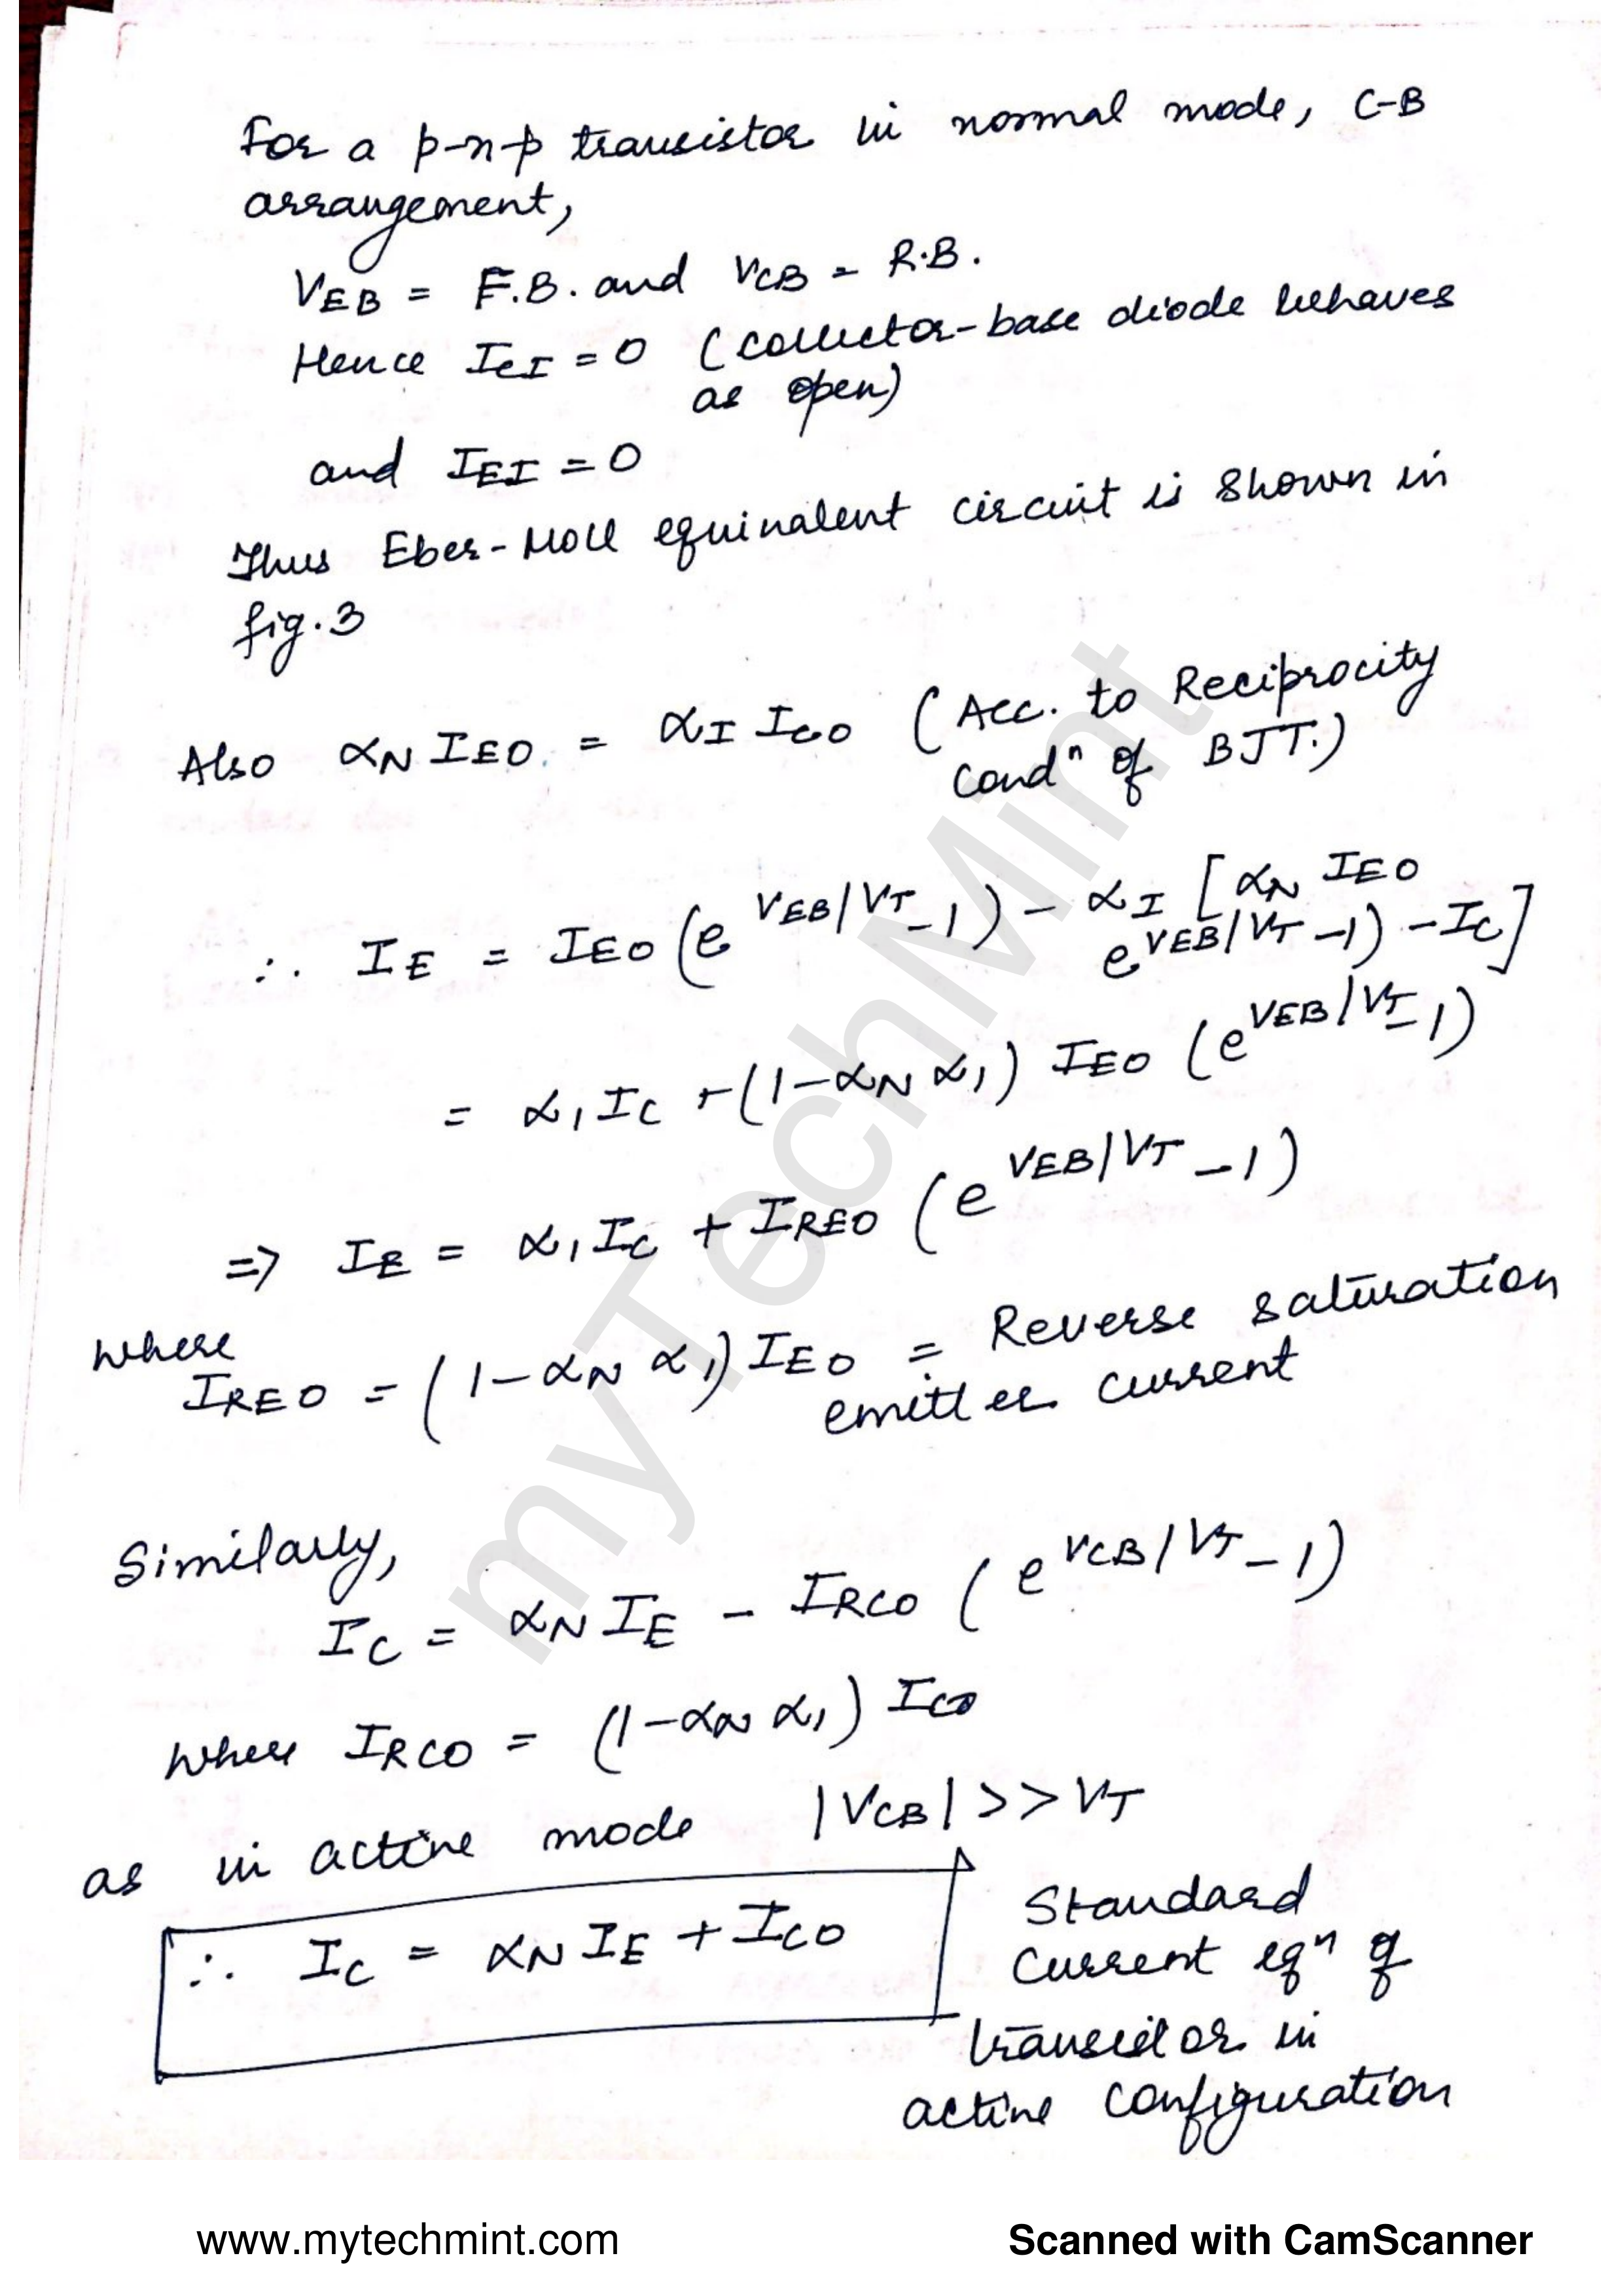 For a p-n-p transistor in normal mode, C-B
arrangement,
V_EB = F.B. and V_CB = R.B.
Hence I_CI = 0 (Collector-base diode behaves
as open)
and I_EI = 0
Thus Eber-Moll equivalent circuit is shown in
fig.3
Also α_N I_EO = α_I I_CO (Acc. to Reciprocity
condⁿ of BJT.)
∴ I_E = I_EO (e^{V_EB/V_T} - 1) - α_I [α_N I_EO
e^{V_EB/V_T} - 1) - I_C]
= α_1 I_C + (1 - α_N α_1) I_EO (e^{V_EB/V_T} - 1)
=> I_E = α_1 I_C + I_REO (e^{V_EB/V_T} - 1)
where
I_REO = (1 - α_N α_1) I_EO = Reverse saturation
emitter current
Similarly,
I_C = α_N I_E - I_RCO (e^{V_CB/V_T} - 1)
where I_RCO = (1 - α_N α_1) I_CO
as in active mode |V_CB| >> V_T
∴ I_C = α_N I_E + I_CO
Standard
Current eqⁿ of
transistor in
active configuration
myTechMint
www.mytechmint.com
Scanned with CamScanner